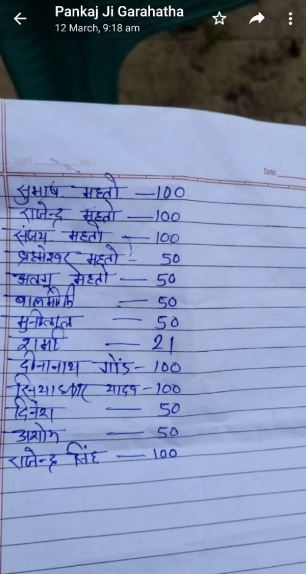 Pankaj Ji Garahatha
12 March, 9:18 am
Date:
सुभाष महतो — 100
राजेन्द्र महतो — 100
संजय महतो — 100
महतो — 50
महतो — 50
बालमीकि — 50
मुनीलाल — 50
शर्मा — 21
दीनानाथ गोंड - 100
यादव - 100
दिनेश — 50
अशोक — 50
राजेन्द्र सिंह — 100